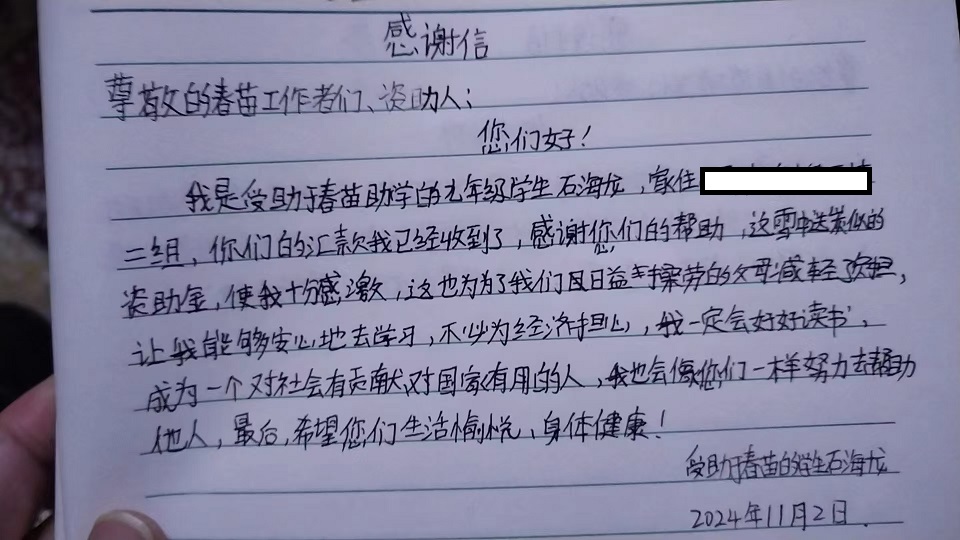 感谢信
尊敬的春苗工作者们、资助人:
您们好!
我是受助于春苗助学的九年级学生石海龙,家住
二组,你们的汇款我已经收到了,感谢您们的帮助,这雪中送炭似的
资助金,使我十分感激,这也为了我们日益操劳的父母减轻了负担,
让我能够安心地去学习,不必为经济担心,我一定会好好读书,
成为一个对社会有贡献,对国家有用的人,我也会像您们一样努力去帮助
他人,最后,希望您们生活愉悦、身体健康!
受助于春苗的学生石海龙
2024年11月2日.